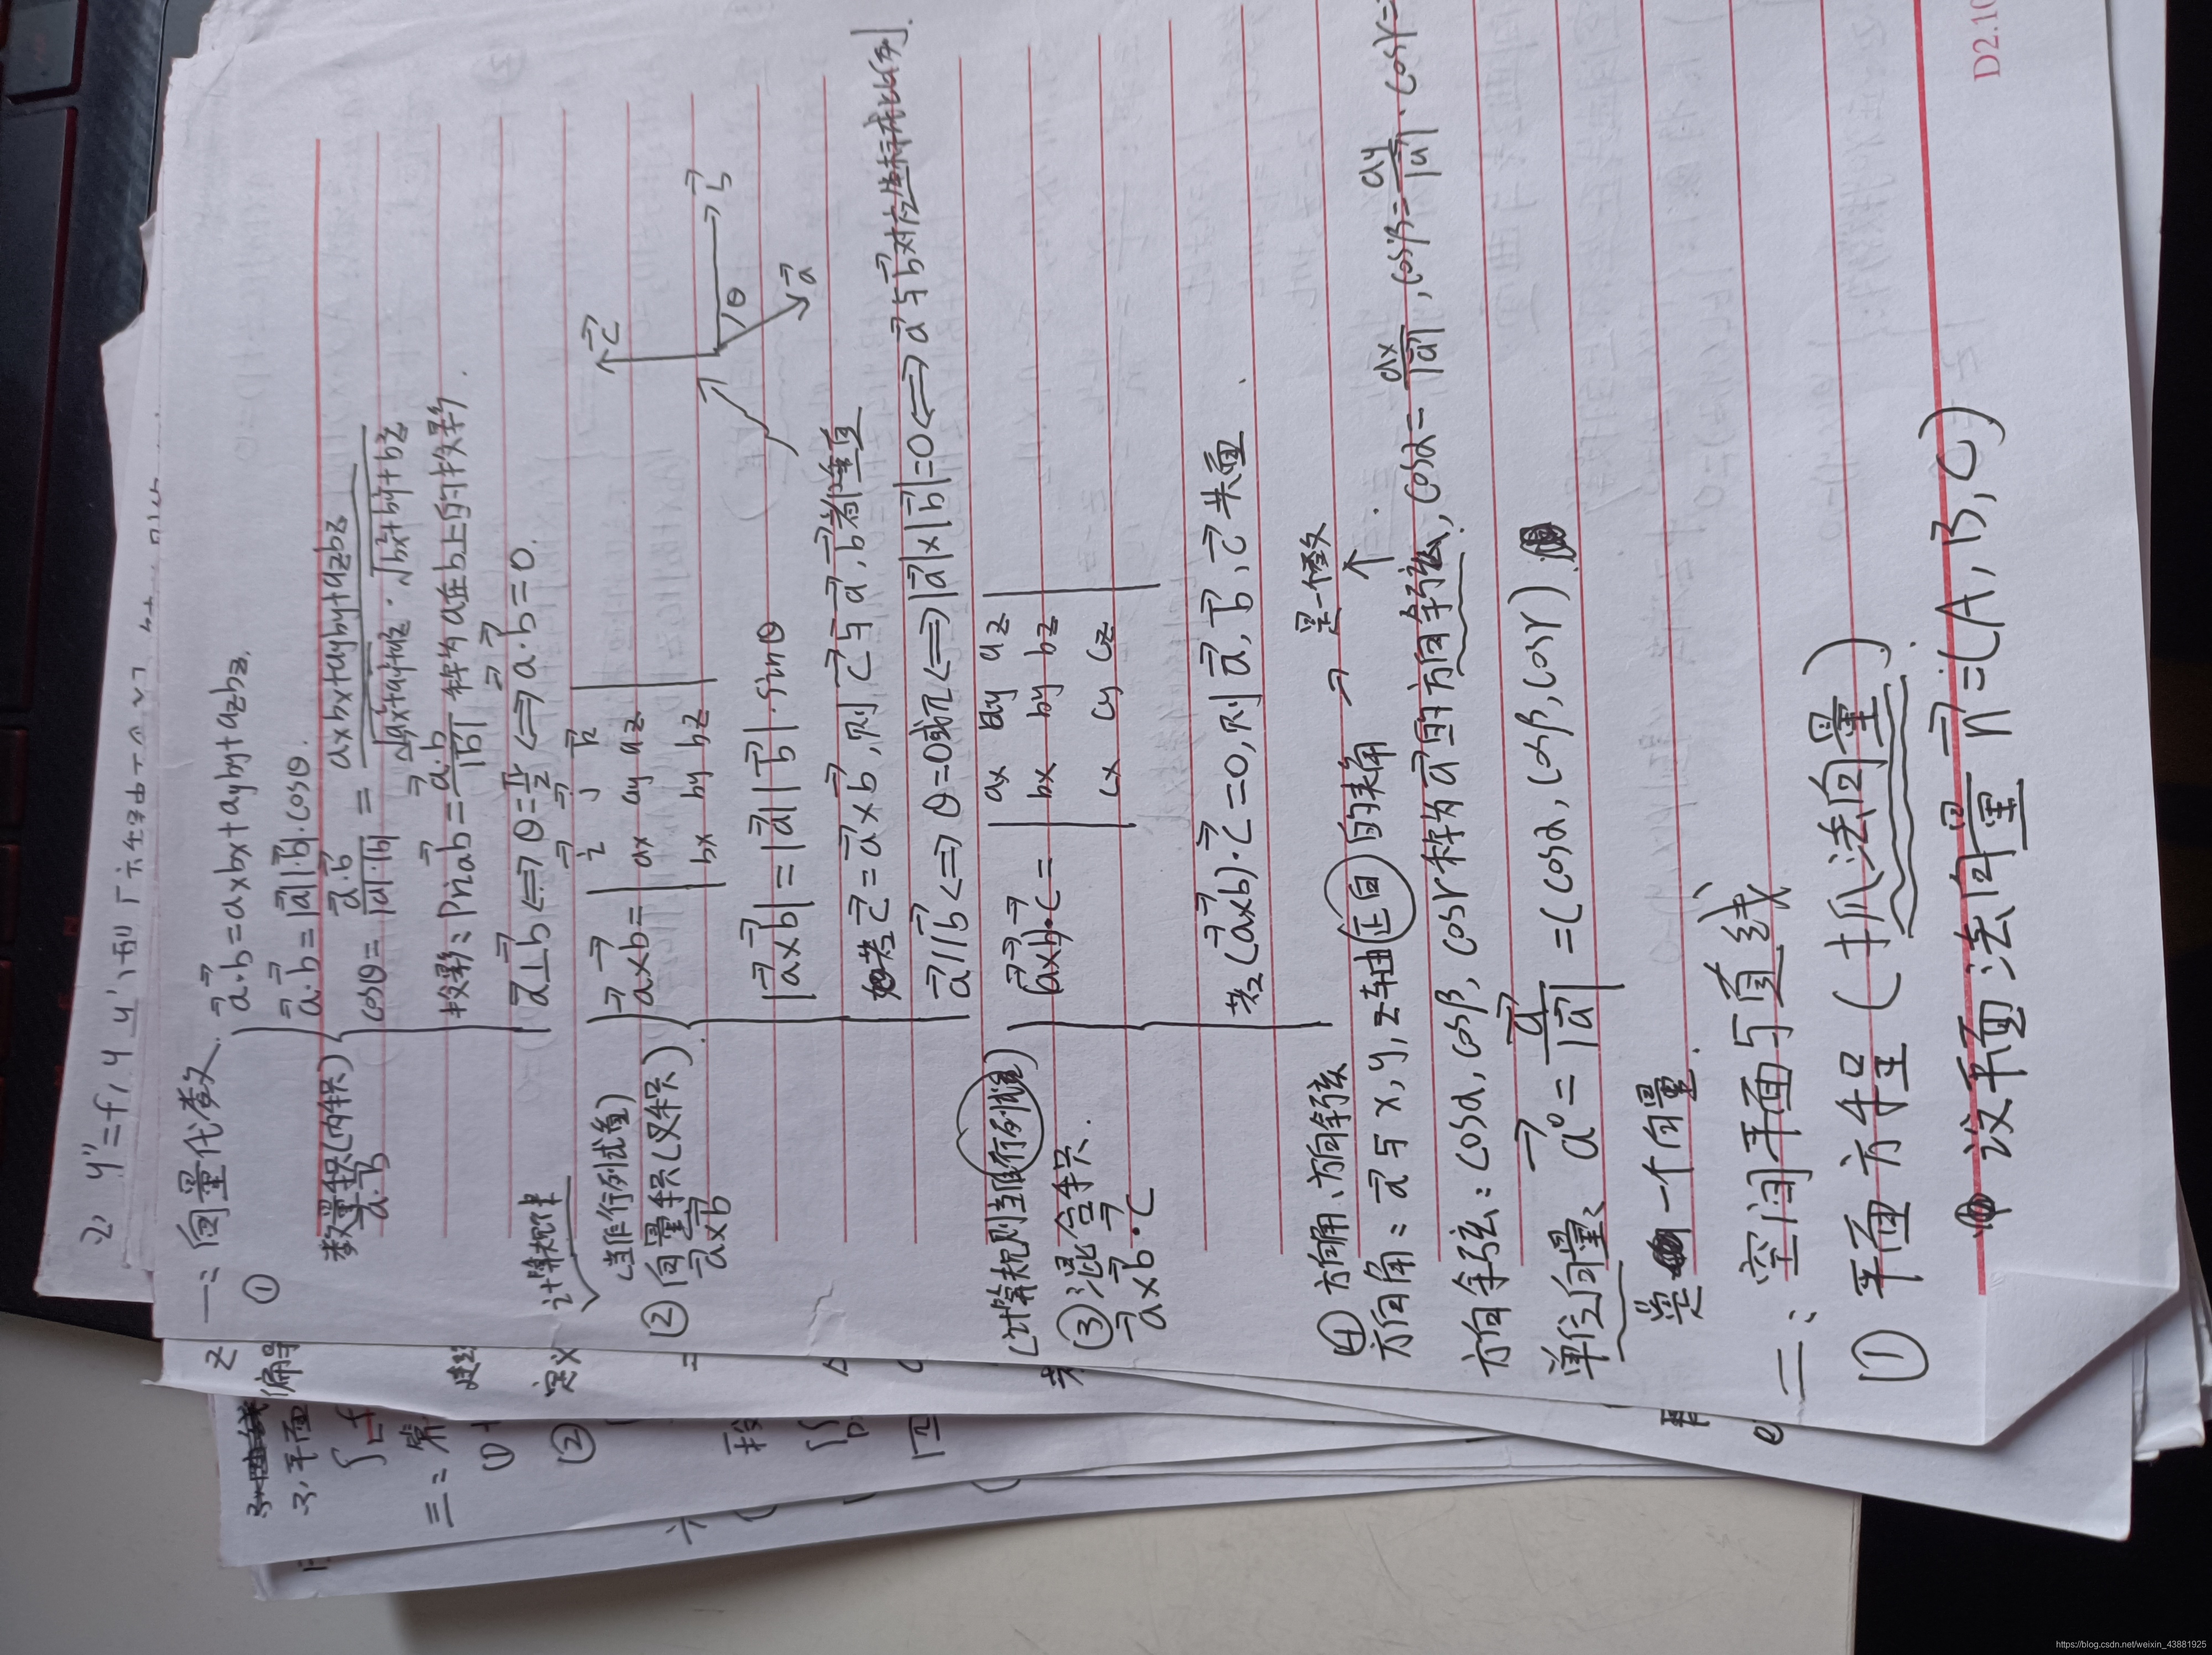 2、y''=f(y,y')型
一：向量代数.
① 数量积(内积) a·b
a·b=axbx+ayby+azbz.
a·b=|a||b|·cosθ.
cosθ=a·b/|a|·|b|=axbx+ayby+azbz/√ax²+ay²+az²·√bx²+by²+bz²
投影：Prjab=a·b/|b|称为a在b上的投影.
a⊥b⟺θ=π/2⟺a·b=0.
计算规律
(当作行列式看)
② 向量积(叉积). a×b
a×b=
i j k
ax ay az
bx by bz
c
b
θ
a
|a×b|=|a||b|·sinθ
若c=a×b,则c与a,b都垂直
a//b⟺θ=0或π⟺|a|×|b|=0⟺a与b对应坐标成比例.
(计算规则当作行列式)
③ 混合积. a×b·c
(a×b)·c=
ax ay az
bx by bz
cx cy cz
若(a×b)·c=0,则a,b,c共面.
④ 方向角、方向余弦 是一个数
方向角：a与x,y,z轴正向的夹角.
方向余弦：cosα,cosβ,cosγ称为a的方向余弦,cosα=ax/|a|,cosβ=ay/|a|,cosγ=
单位向量：a⁰=a/|a|=(cosα,cosβ,cosγ)
是一个向量.
二：空间平面与直线
① 平面方程(抓法向量).
设平面法向量n=(A,B,C)
D2.10
3、平面
三：
①
② 定义
https://blog.csdn.net/weixin_43881925